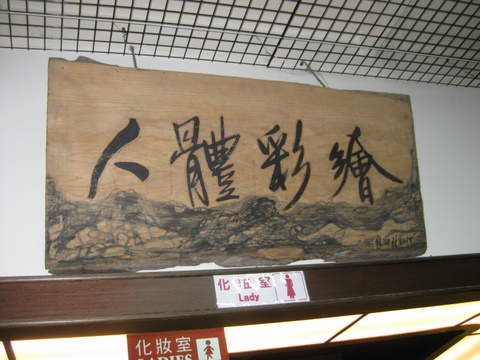 人體彩繪
化妝室
Lady
化妝室
LADIES